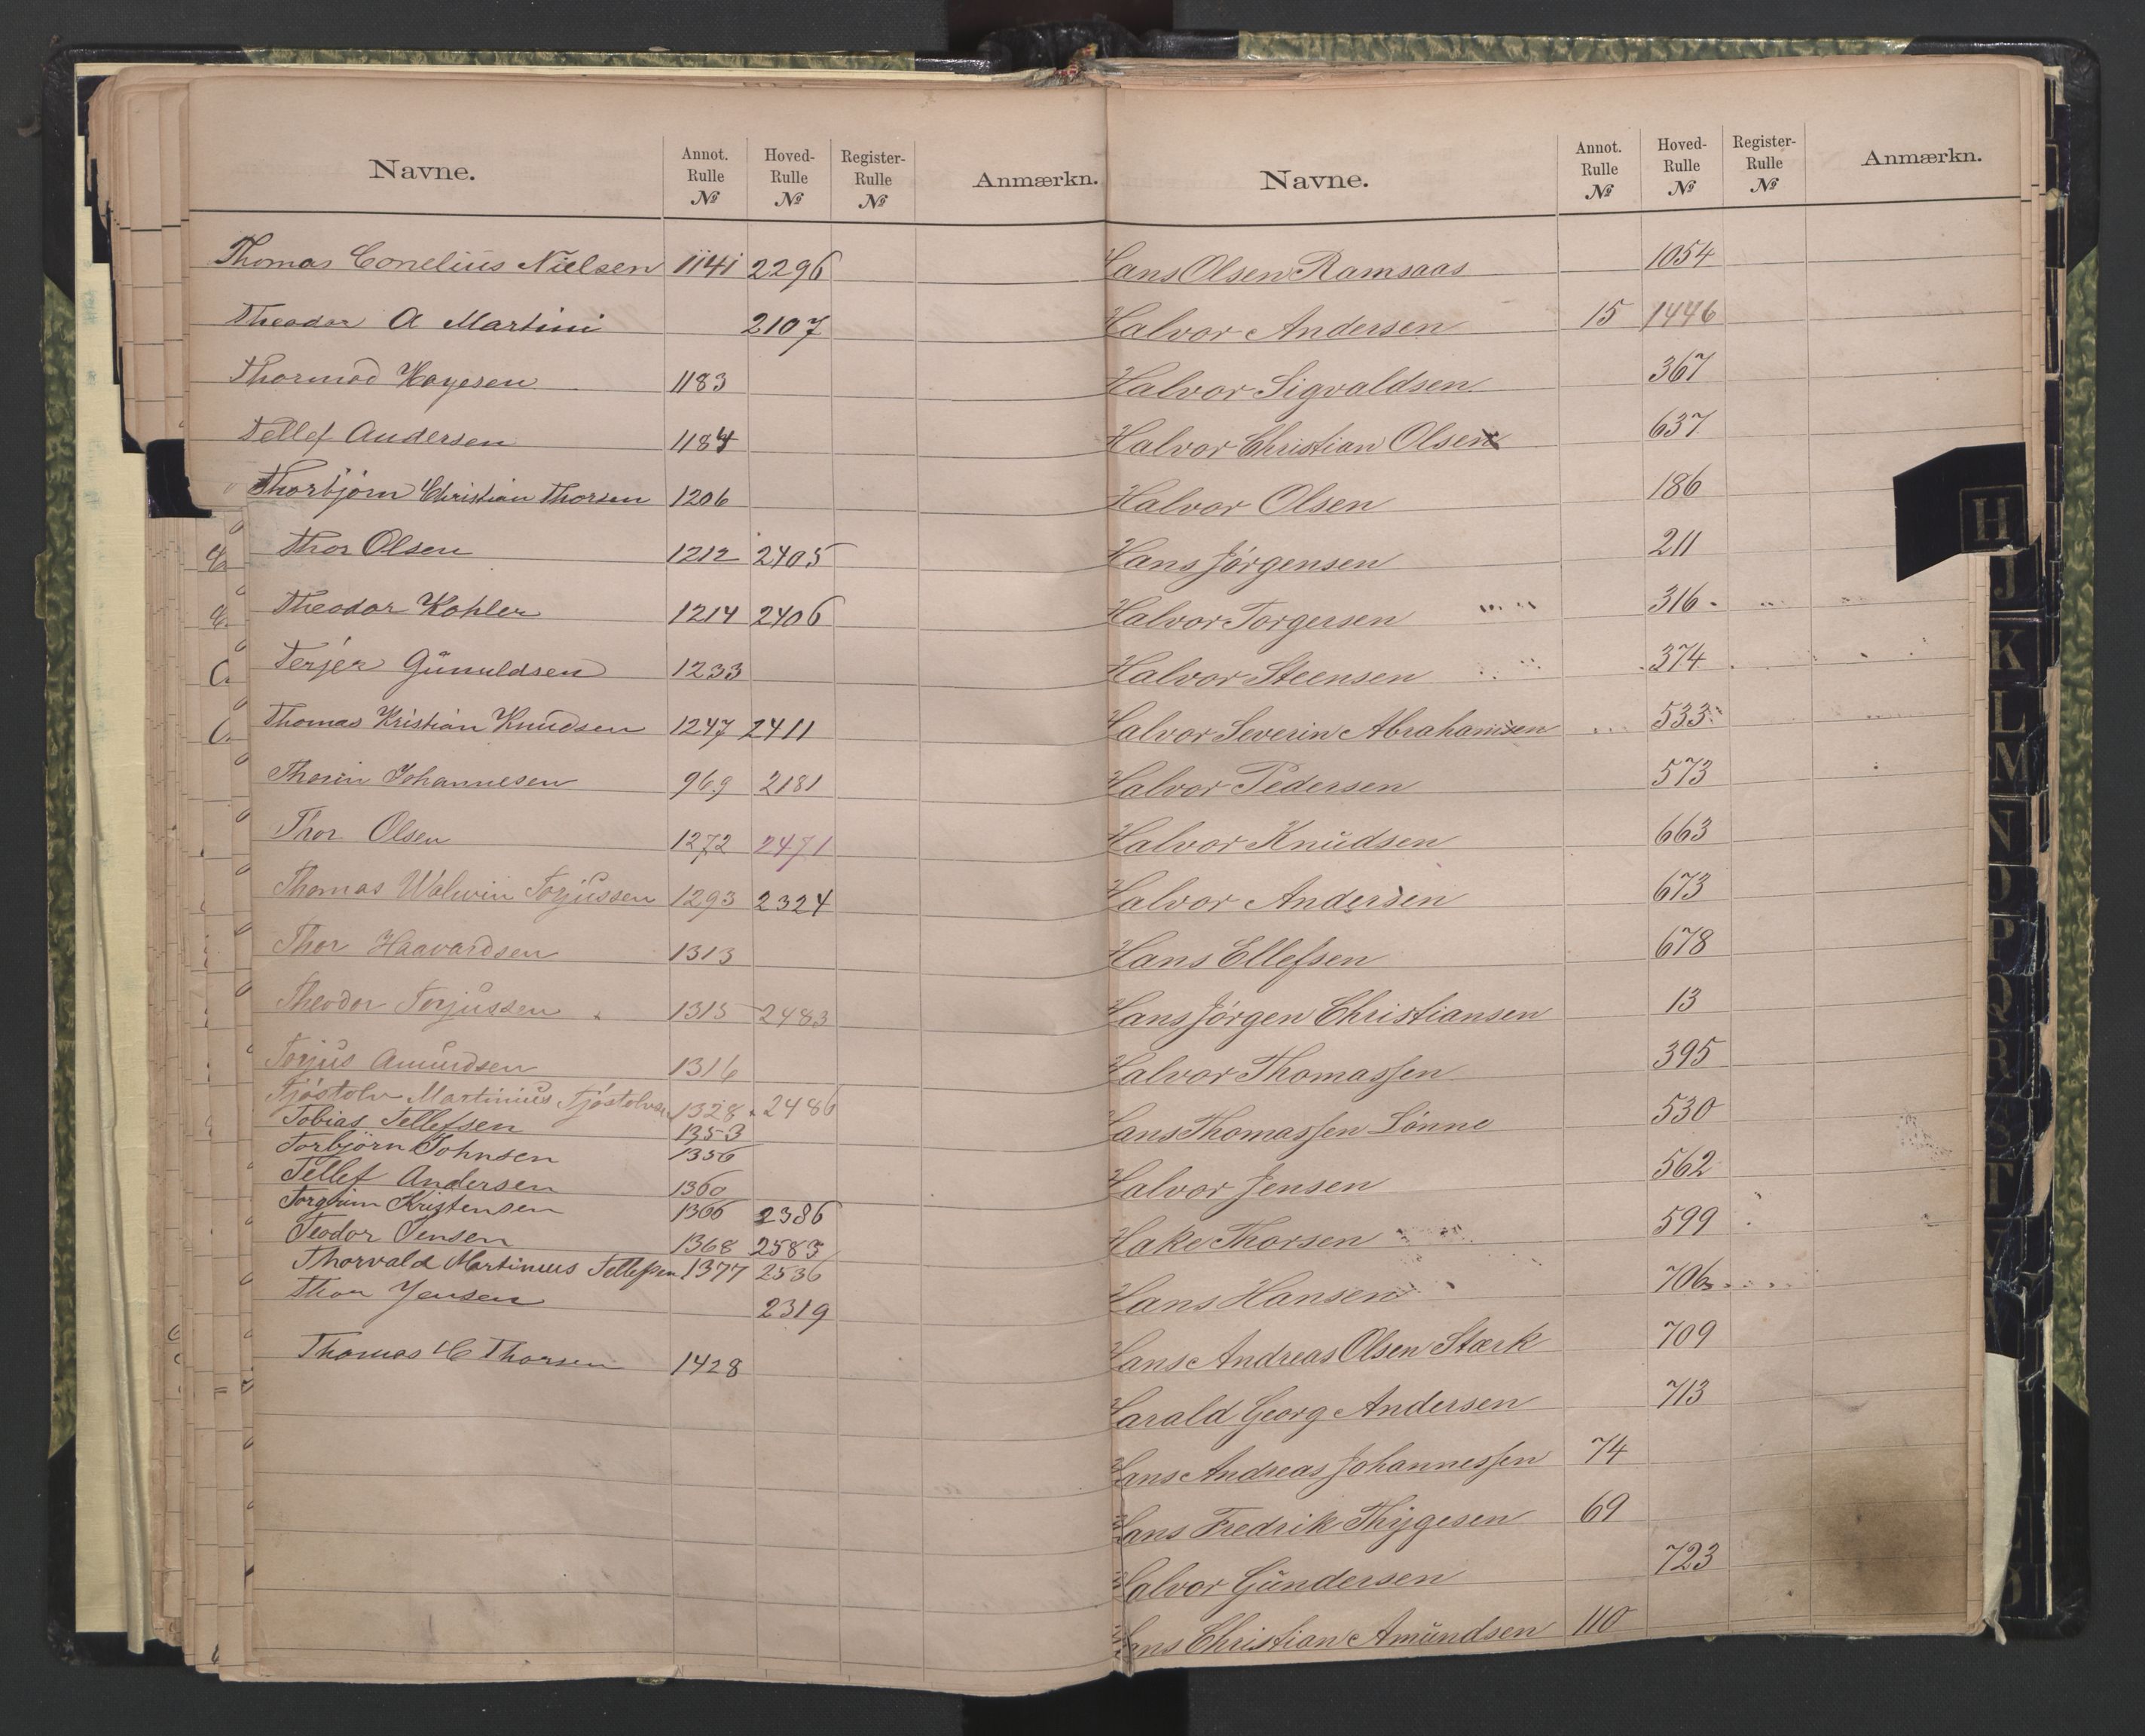 Navne. Annot. Rulle № Hoved- Rulle № Register- Rulle № Anmærkn.
Thomas Conelius Nielsen 1141 2296
Theodor A Martini 2107
Thormod Hayesen 1183
Tellef Andersen 1184
Thorbjørn Christian Thorsen 1206
Thor Olsen 1212 2405
Theodor Kohler 1214 2406
Terjer Gunuldsen 1233
Thomas Kristian Knudsen 1247 2411
Johannesen 969 2181
Thor Olsen 1272 2471
Thomas Walwin Torjussen 1293 2324
Thor Haavardsen 1313
Theodor Torjussen 1315 2483
Torjus Amundsen 1316
Tjøstolv Martinius Tjøstolvsen 1328 2486
Tobias Tellefsen 1353
Torbjørn Johnsen 1356
Tellef Andersen 1360
Torgrim Kristensen 1366 2386
Teodor Jensen 1368 2583
Thorvald Martinius Tellefsen 1377 2536
Thor Jensen 2319
Thomas C Thorsen 1428
Navne. Annot. Rulle № Hoved- Rulle № Register- Rulle № Anmærkn.
Hans Olsen Ramsaas 1054
Halvor Andersen 15 1446
Halvor Sigvaldsen 367
Halvor Christian Olsen 637
Halvor Olsen 186
Hans Jørgensen 211
Halvor Torgersen 316
Halvor Steensen 374
Halvor Severin Abrahamsen 533
Halvor Pedersen 573
Halvor Knudsen 663
Halvor Andersen 673
Hans Ellefsen 678
Hans Jørgen Christiansen 13
Halvor Thomassen 395
Hans Thomassen Lønne 530
Halvor Jensen 562
Hake Thorsen 599
Hans Hansen 706
Hans Andreas Olsen Stærk 709
Harald Georg Andersen 713
Hans Andreas Johannessen 74
Hans Fredrik Thygesen 69
Halvor Gundersen 723
Hans Christian Amundsen 110
H
J
K
L
M
N
O
P
Q
R
S
T
V